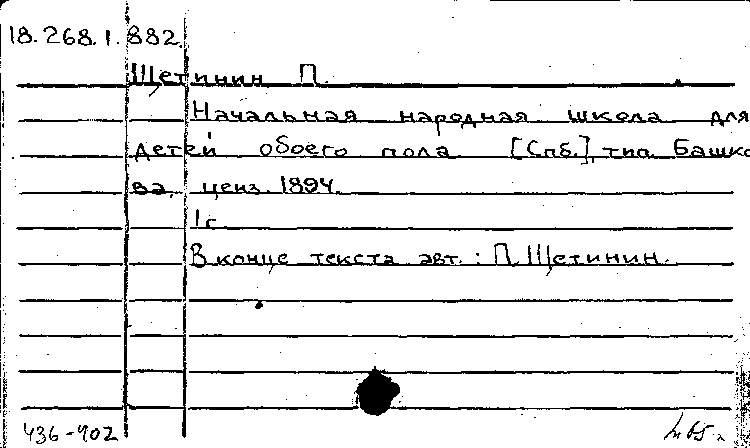 18.268.1.882.
Щетинин П.
Начальная народная школа для
детей обоего пола [Спб.], тип. Башко
ва, ценз. 1894.
1 с.
В конце текста авт.: П. Щетинин.
436-902